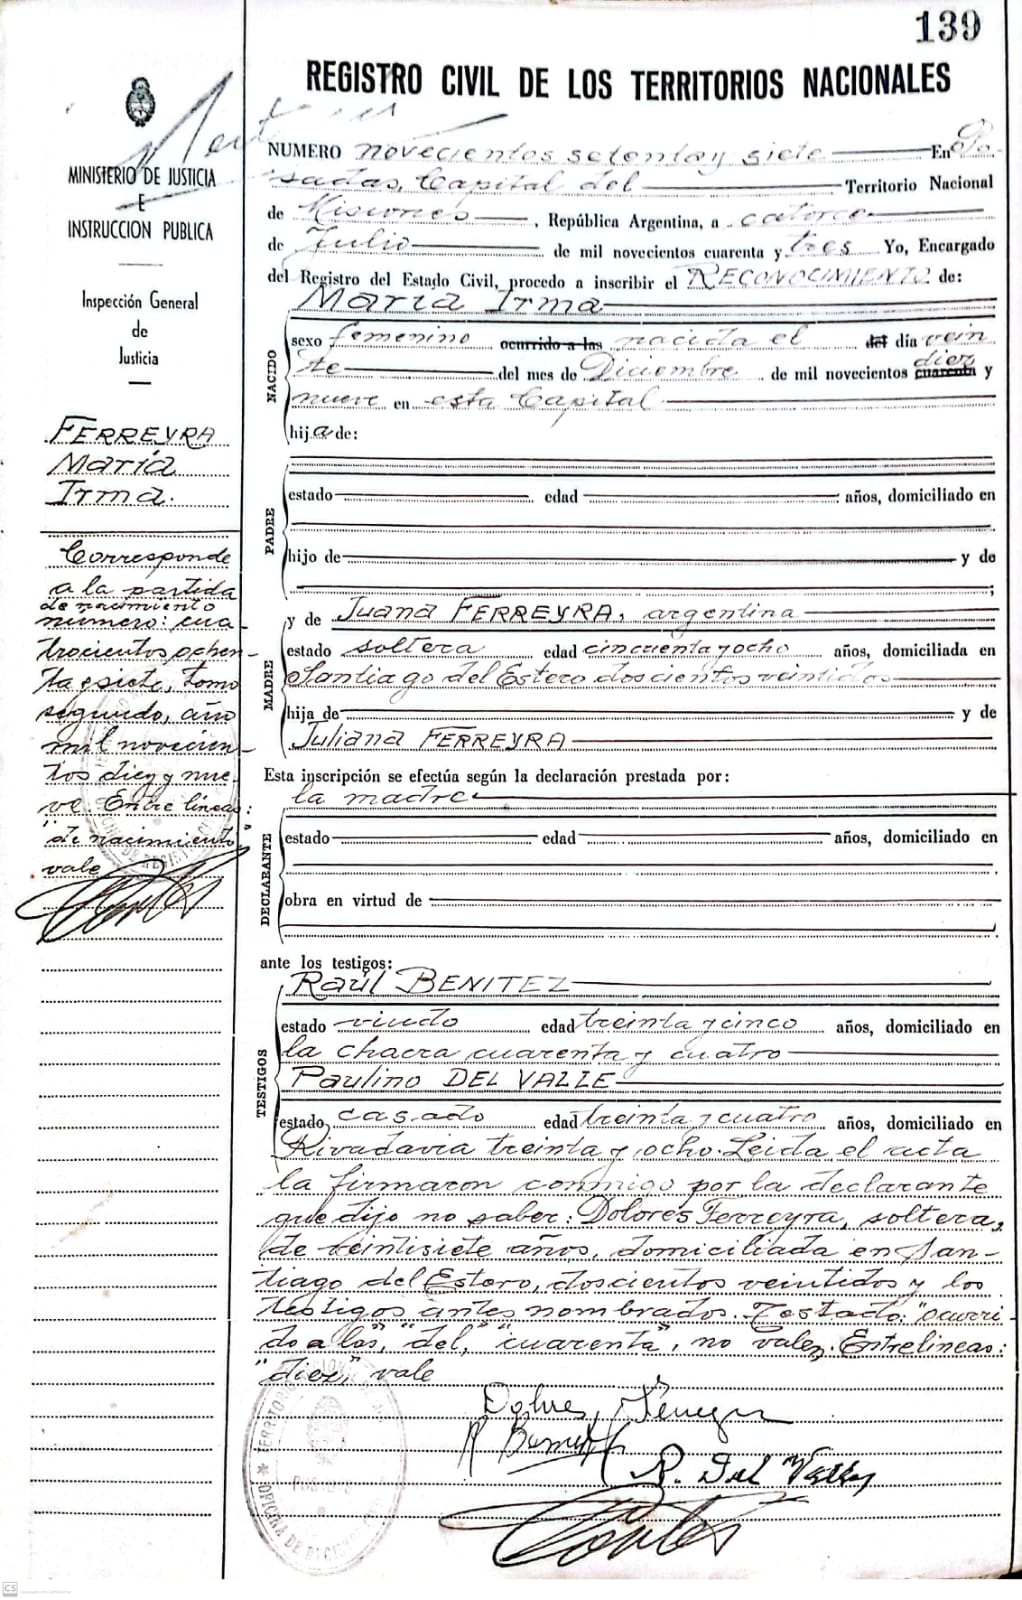 139
REGISTRO CIVIL DE LOS TERRITORIOS NACIONALES
MINISTERIO DE JUSTICIA
E
INSTRUCCION PUBLICA
Inspección General
de
Justicia
FERREYRA
María
Irma.
Corresponde
a la partida
de nacimiento
número: cua-
trocientos ochen-
ta y siete, tomo
segundo, año
mil novecien-
tos diez y nue-
ve. Entre líneas:
"de nacimiento"
vale
NUMERO novecientos setenta y siete En Po-
sadas, Capital del Territorio Nacional
de Misiones, República Argentina, a catorce
de Julio de mil novecientos cuarenta y tres Yo, Encargado
del Registro del Estado Civil, procedo a inscribir el RECONOCIMIENTO de:
María Irma
NACIDO
sexo femenino ocurrido a las nacida el del día vein
te del mes de Diciembre de mil novecientos cuarenta diez y
nueve en esta Capital
hija de:
PADRE
estado edad años, domiciliado en
hijo de y de
MADRE
y de Juana FERREYRA, argentina
estado soltera edad cincuenta y ocho años, domiciliada en
Santiago del Estero doscientos veintidos
hija de y de
Juliana FERREYRA
Esta inscripción se efectúa según la declaración prestada por:
la madre
DECLARANTE
estado edad años, domiciliado en
obra en virtud de
ante los testigos:
TESTIGOS
Raúl BENITEZ
estado viudo edad treinta y cinco años, domiciliado en
la chacra cuarenta y cuatro
Paulino DEL VALLE
estado casado edad treinta y cuatro años, domiciliado en
Rivadavia treinta y ocho. Leida el acta
la firmaron conmigo por la declarante
que dijo no saber: Dolores Ferreyra, soltera,
de veintisiete años, domiciliada en San-
tiago del Estero, doscientos veintidos y los
testigos antes nombrados. Testado: "ocurri-
do a las", "del", "cuarenta", no valen. Entrelíneas:
"diez", vale
Dolores
P. Del Valle